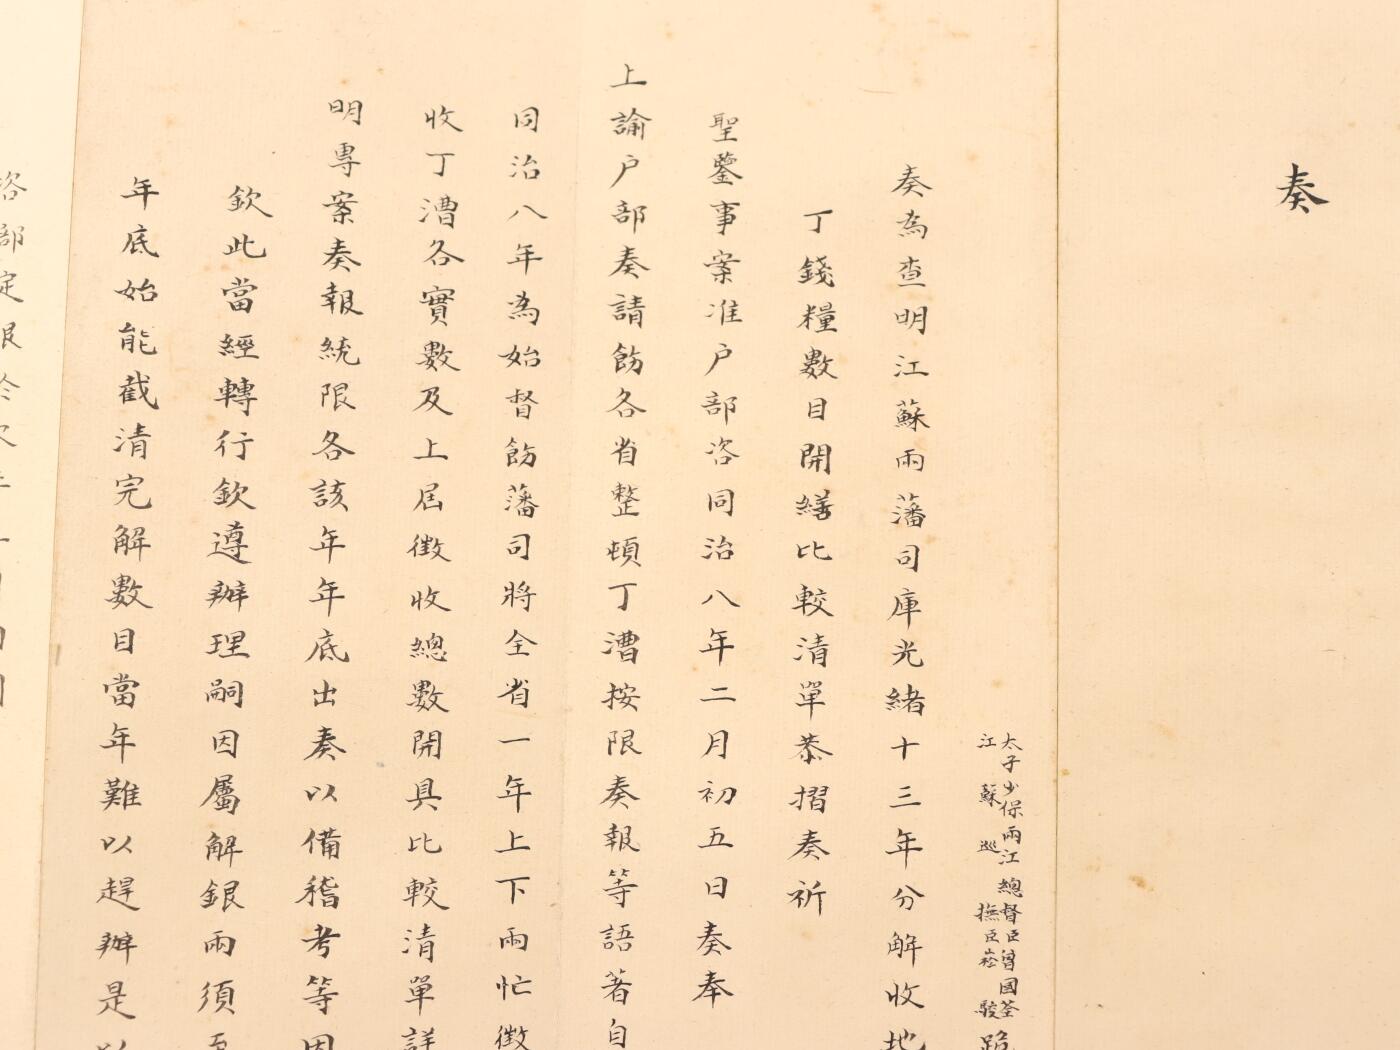 奏
太子少保兩江總督臣曾國荃
江蘇巡撫臣崧駿
跪
奏為查明江蘇兩藩司庫光緒十三年分解收地
丁錢糧數目開繕比較清單恭摺奏祈
聖鑒事案准户部咨同治八年二月初五日奏奉
上諭户部奏請飭各省整頓丁漕按限奏報等語著自
同治八年為始督飭藩司將全省一年上下兩忙徵
收丁漕各實數及上屆徵收總數開具比較清單詳
明專案奏報統限各該年年底出奏以備稽考等因
欽此當經轉行欽遵辦理嗣因屬解銀兩須至
年底始能截清完解數目當年難以趕辦是以
咨部定限於次年